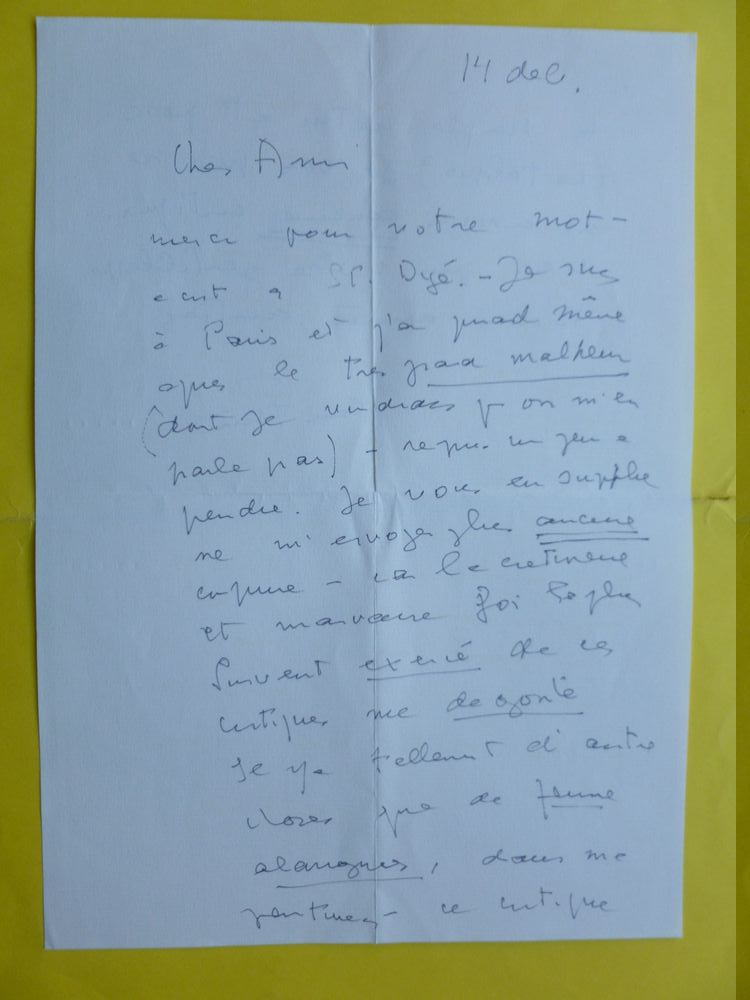 14 dec.
Cher Ami
merci pour votre mot -
ecrit a St. Dyé. - Je suis
à Paris et j'ai quand même
apres le tres grand malheur
(dont je voudrais qu'on m'en
parle pas) - repris un peu a
peindre. Je vous en supplie
ne m'envoyez plus aucune
coupure - car la cretinerie
et mauvaise foi le plus
souvent de ces
critiques me degoute
Il y a tellement d'autre
choses que de femme
, dans me
peintures - ce critique